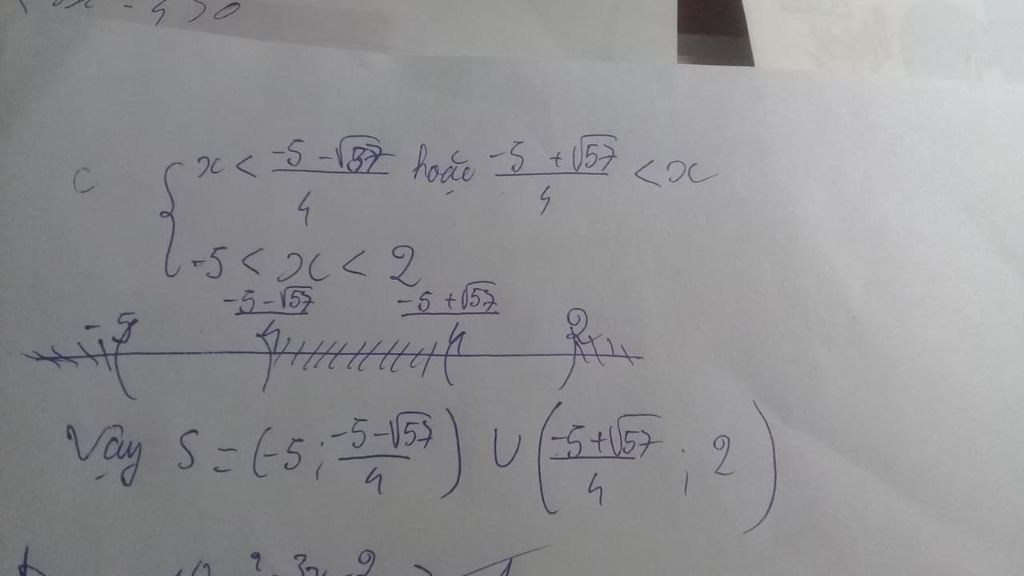 - 4 > 0
c { x < (-5 - √57)/4 hoặc (-5 + √57)/4 < x
-5 < x < 2
-5 (-5 - √57)/4 (-5 + √57)/4 2
Vậy S = (-5 ; (-5 - √57)/4) ∪ ((-5 + √57)/4 ; 2)